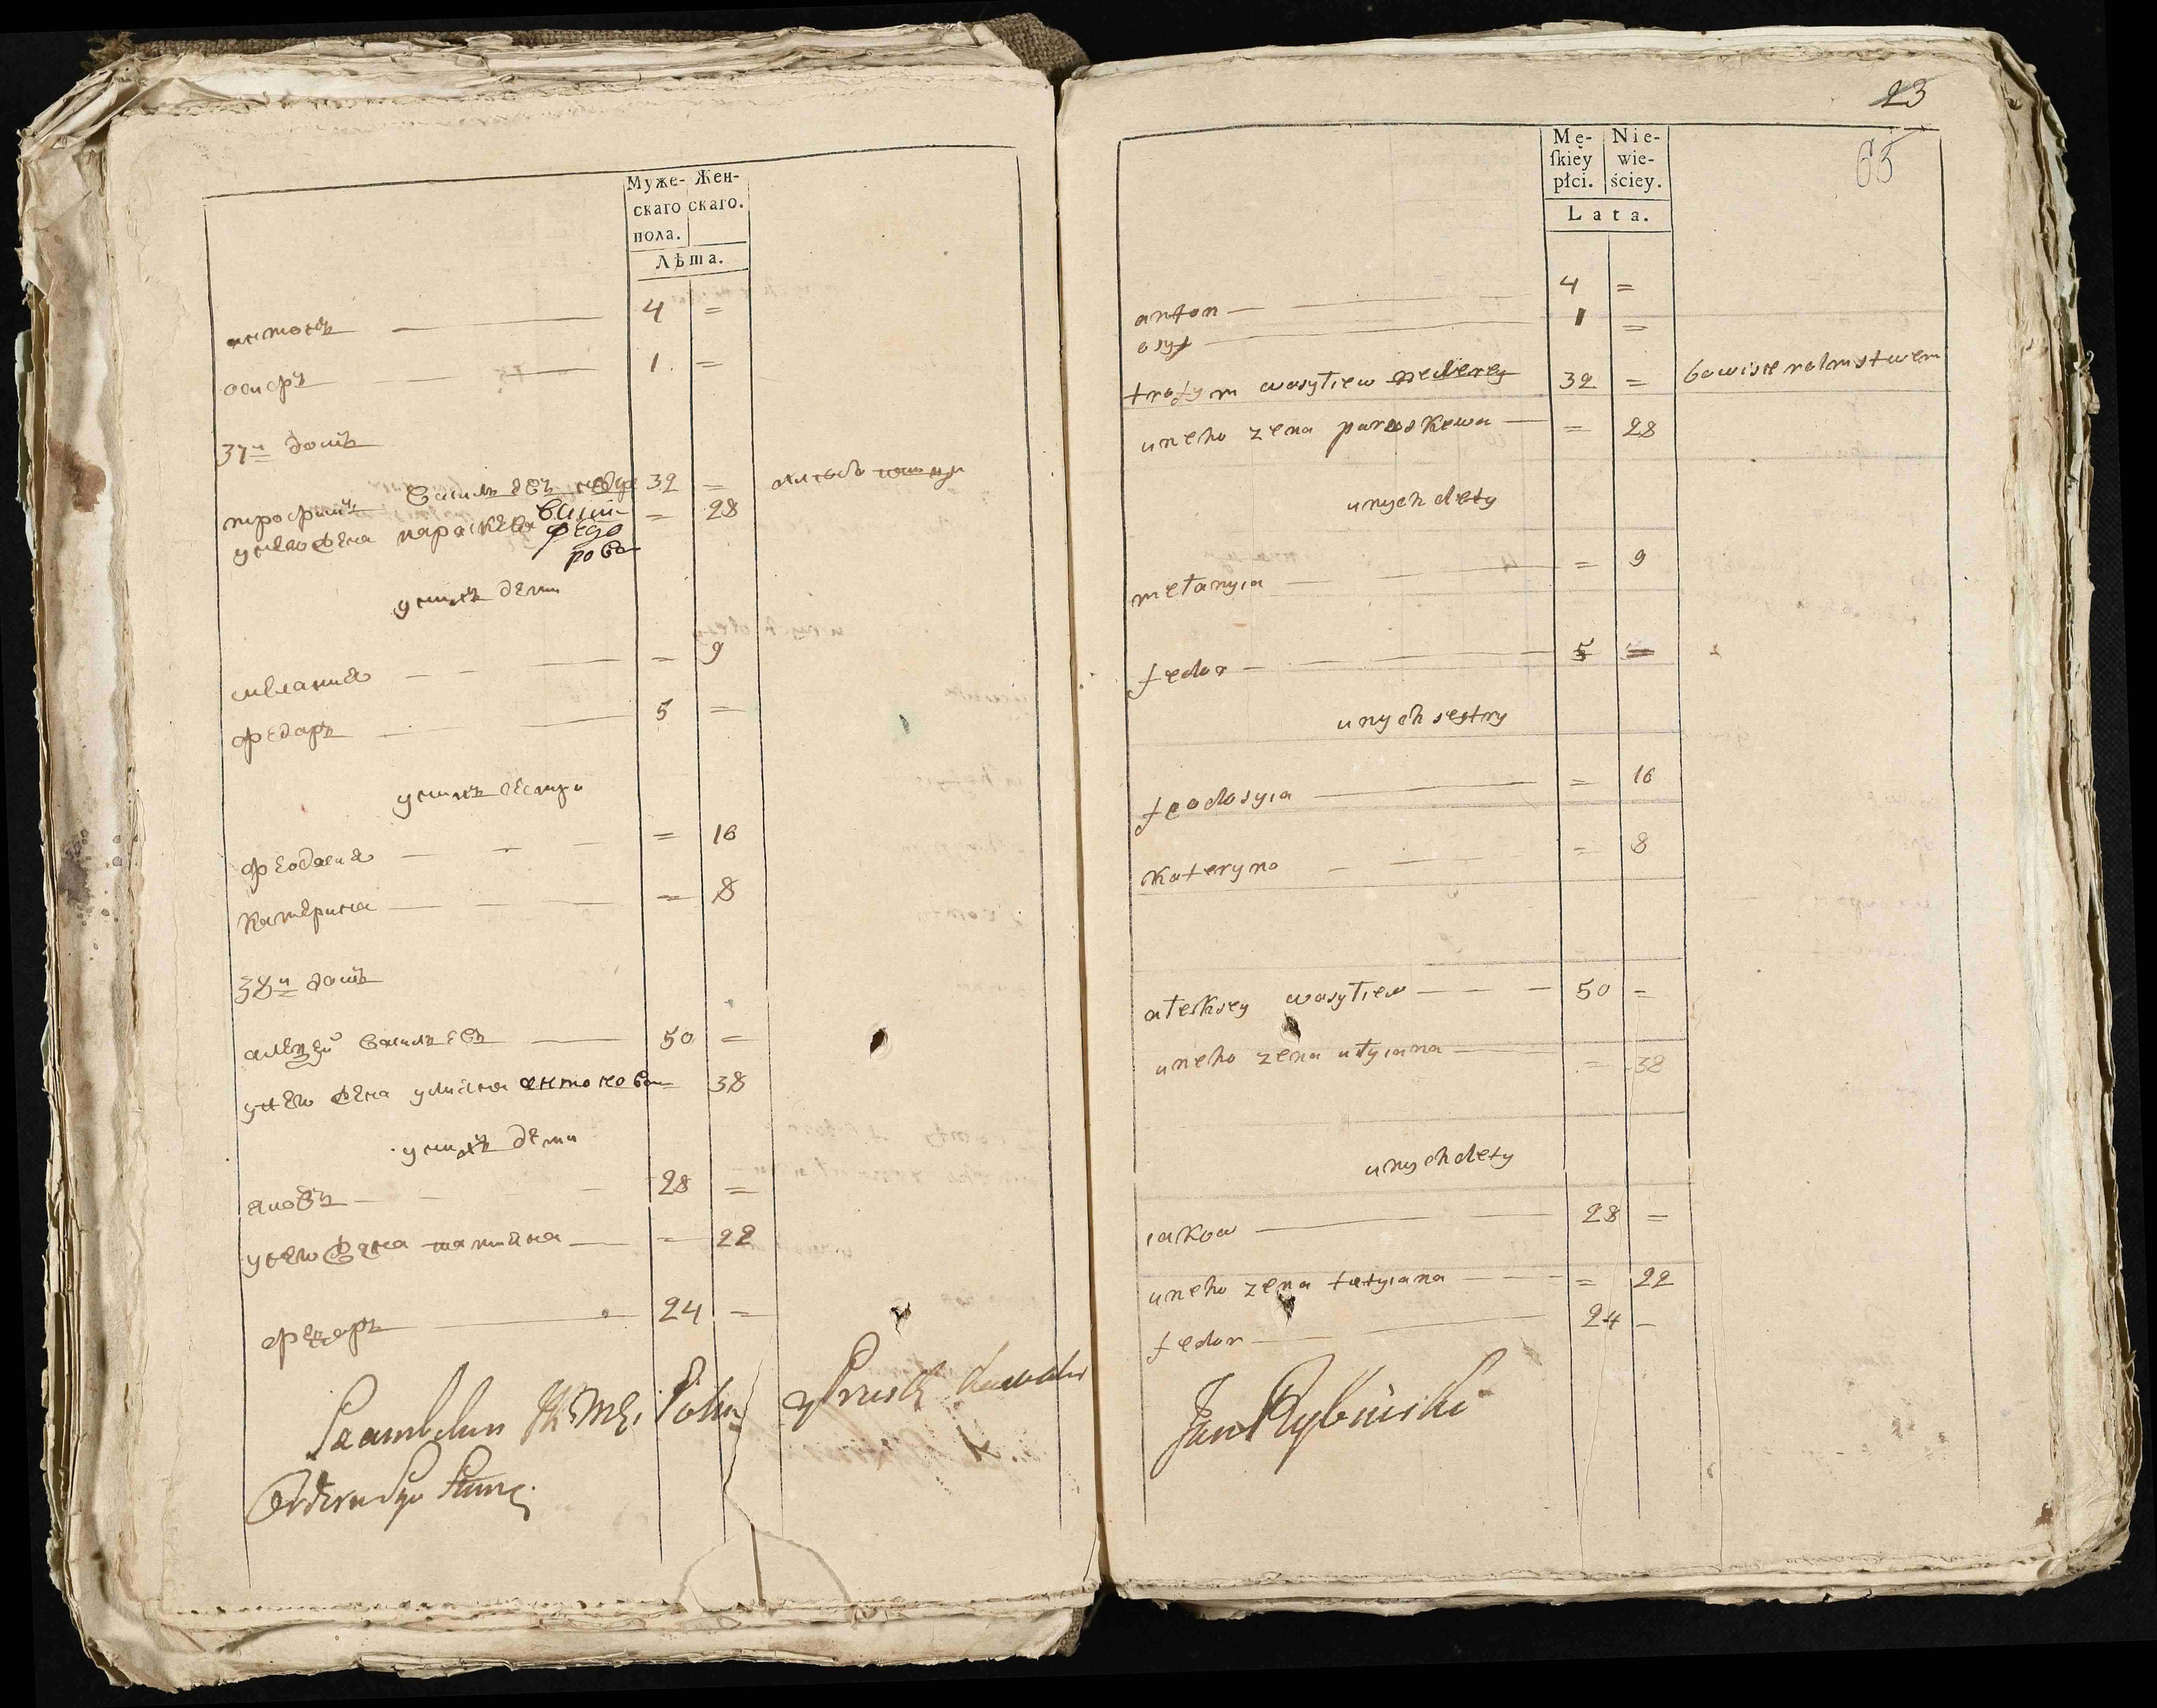 Муже- Жен-
скаго скаго.
пола.
Лѣта.
антонъ 4 =
осифъ 1 =
37й домъ
трофимъ Васильевъ 32 =
унего жена параскева Федо
рова = 28
унихъ дети
мелания = 9
федаръ 5 =
унихъ сестри
феодосия = 16
катерина = 8
38й домъ
алексей Васильевъ 50 =
унего жена улияна антонова = 38
унихъ дети
яковъ 28 =
унего жена татияна = 22
федаръ 24 =
23
65
Mę- Nie-
ſkiey wie-
płci. ściey.
Lata.
anton 4 =
osyf 1 =
trofym wasyliew 32 = bawisie rolnistwem
uneho zena paraskewa = 28
unych dety
melanyia = 9
fedor 5 =
unych sestry
feodosyia = 16
Kateryna = 8
aleksey wasyliew 50 =
uneho zena ulyiana = 38
unych dety
iakow 28 =
uneho zena tatyiana = 22
fedor 24 =
Jan Rybinski